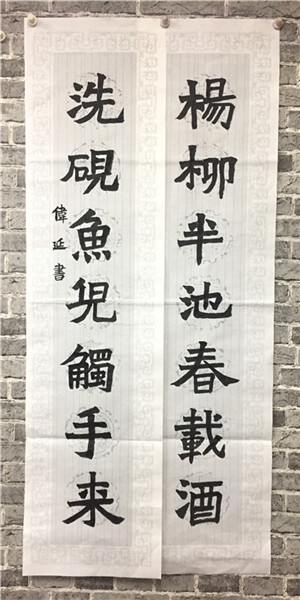 楊柳半池春載酒
洗硯魚児觸手来
偉延書